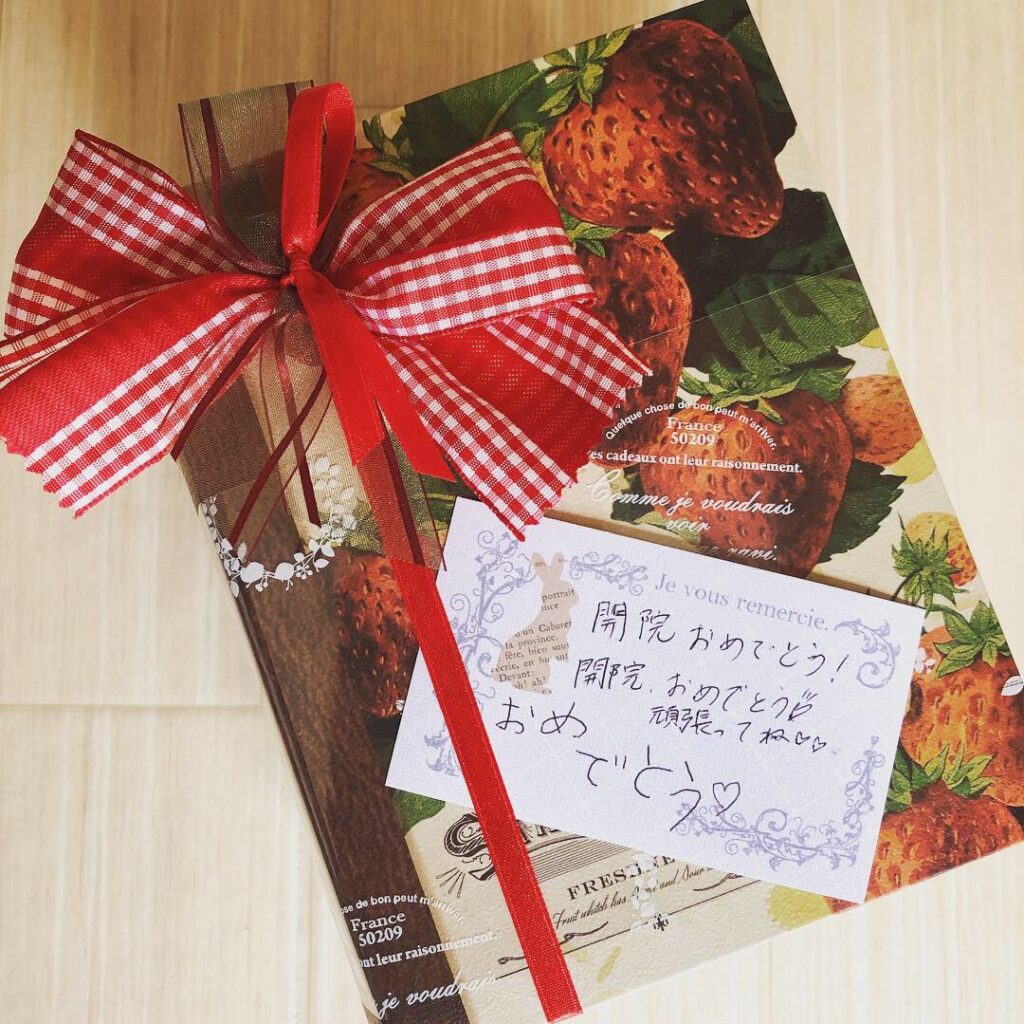 Quelque chose de bon peut m'arriver.
France
50209
es cadeaux ont leur raisonnement.
Comme je voudrais
voir
Je vous remercie.
portrait
d'un Cabaret
la province.
fête, bien
Devant:
ah! ah!
開院 おめでとう!
開院、おめでとう
頑張ってね♡♡
おめ
でとう♡
FRESHNE
Fruit which has and Sour
ose de bon peut m'arriver.
France
50209
ont leur raisonnement.
je voudrais